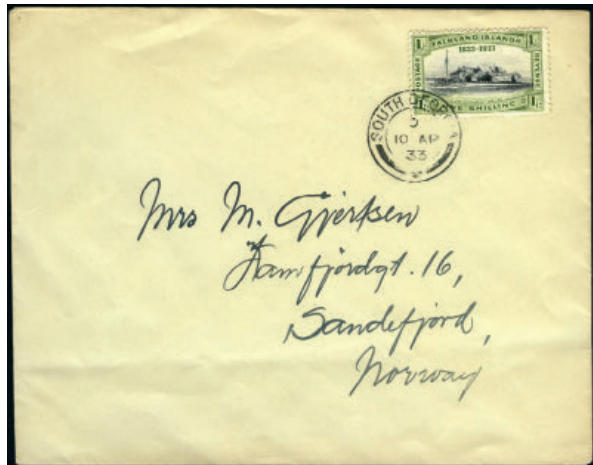 FALKLAND ISLANDS
1833-1933
POSTAGE
REVENUE
1/-
SHILLING
SOUTH GEORGIA
10 AP
33
Mrs M. Gjertsen
Framfjordgt. 16,
Sandefjord,
Norway